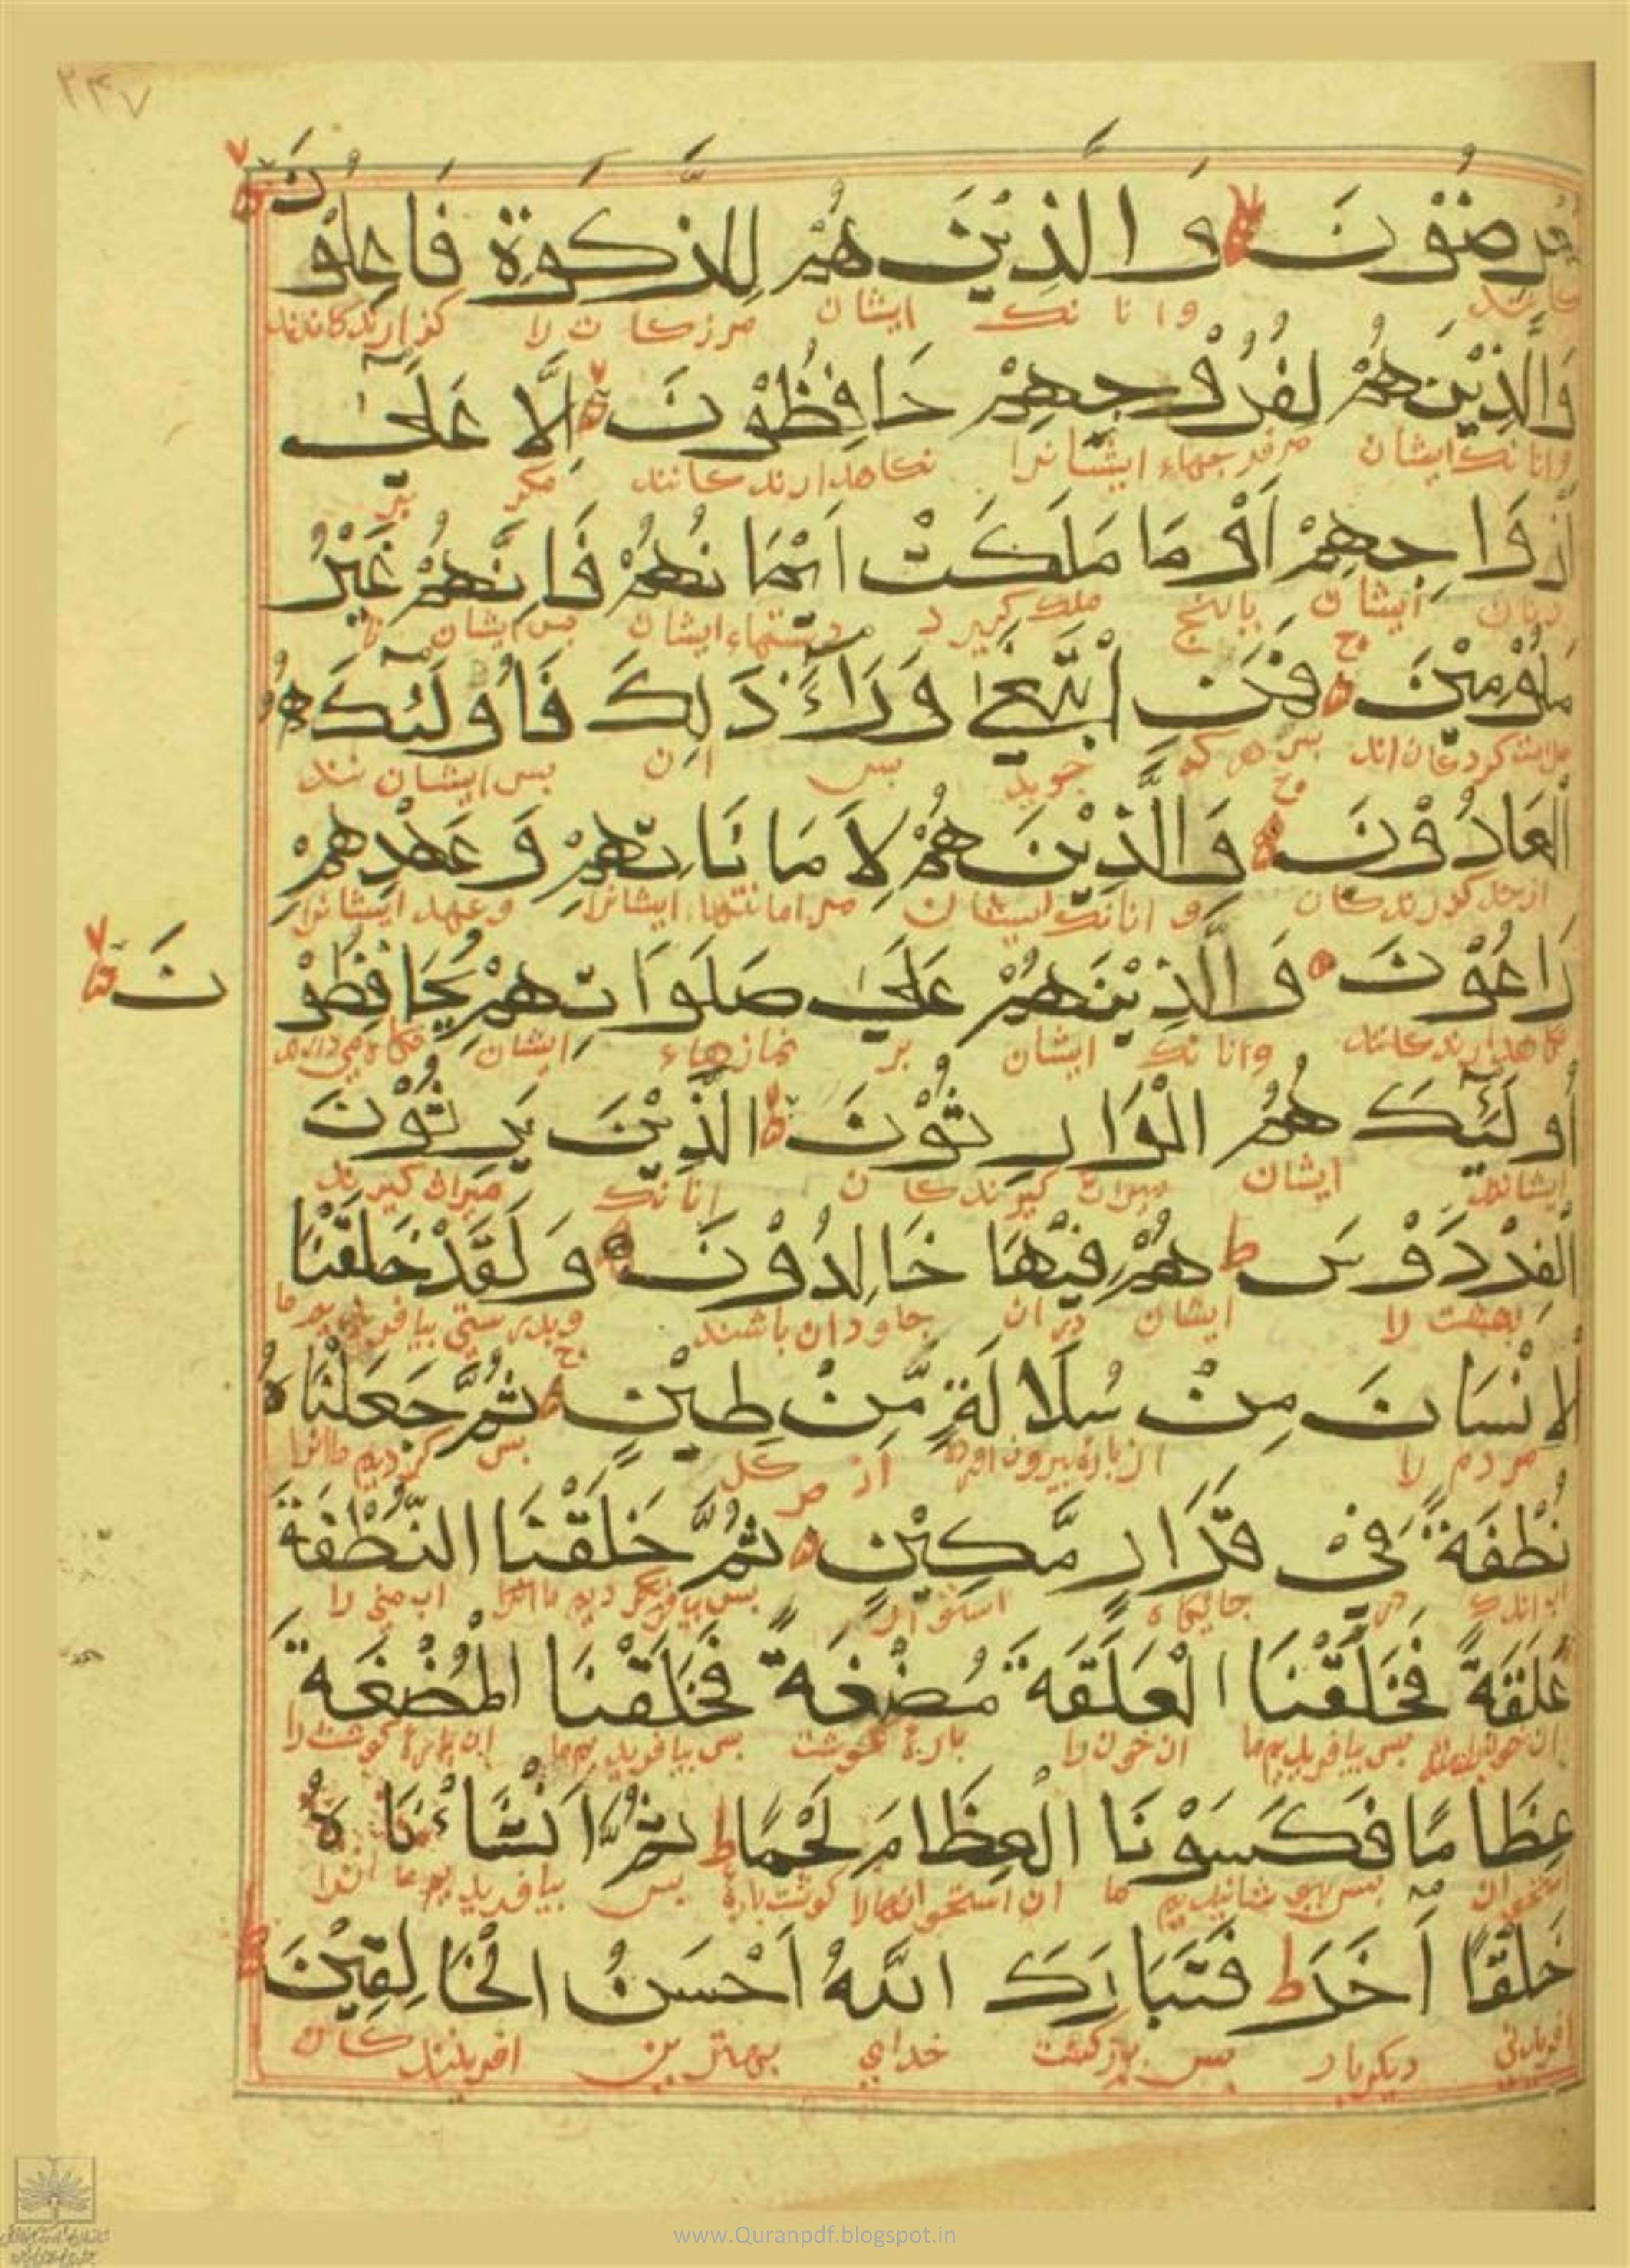 ۲۴۷
معرضون والذین هم للزکوة فاعلون
وانانک ایشان مرزکات را گزارندکانند
والذین هم لفروجهم حافظون الا علی
وانانک ایشان مرفرجهاء ایشانرا نکاهدارندکانند مکر بر
ازواجهم او ما ملکت ایمانهم فانهم غیر
زنان ایشان یاانج ملک کیرد دستهاء ایشان بس ایشان نا
ملومین فمن ابتغی وراء ذلک فاولئک هم
ملامت کردکان اند بس هر که جوید بس ان بس ایشان نند
العادون والذین هم لاماناتهم وعهدهم
ازحد کذرندکان و انانک ایشان مر امانتهاء ایشانرا و عهد ایشانرا
راعون والذین هم علی صلواتهم یحافظون
نکاهدارندکانند وانانک ایشان بر نمازهاء ایشان نکاه می دارند
اولئک هم الوارثون الذین یرثون
ایشانند ایشان میراث کیرندکان انانک میراث کیرند
الفردوس هم فیها خالدون ولقد خلقنا
بهشت را ایشان دران جاودان باشند وبدرستی بیافریدیم ما
الانسان من سلالة من طین ثم جعلناه
مردم را از بس کردیم ما انرا
نطفة فی قرار مکین ثم خلقنا النطفة
در جایکاه استوار اب منی را
علقة فخلقنا العلقة مضغة فخلقنا المضغة
بس بیافریدیم ما ان خون را بارهٔ کوشت بس بیافریدیم ما ان بارهٔ کوشت را
عظاما فکسونا العظام لحما ثم انشاءناه
استخوان بس بپوشانیدیم ما ان استخوانها را کوشت بارهٔ بس بیافریدیم ما انرا
خلقا اخر فتبارک الله احسن الخالقین
افریدنی دیکربار بس بزرکست خدای بهترین افرینندکان
www.Quranpdf.blogspot.in